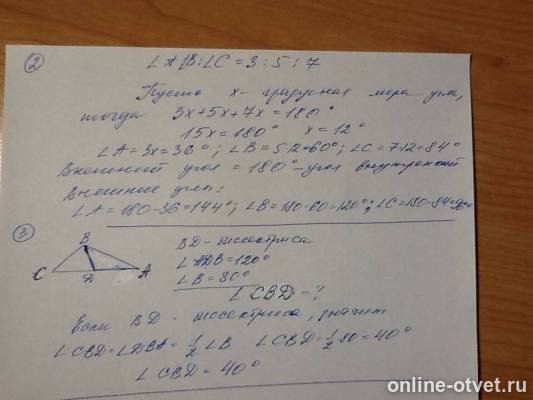 2
∠A:B:∠C = 3 : 5 : 7
Пусть x - градусная мера угла,
тогда 3x+5x+7x=180°
15x=180° x=12°
∠A=3x=36°; ∠B=5·12=60°; ∠C=7·12=84°
Внешний угол = 180°-угол внутренний
Внешние углы:
∠A=180-36=144°; ∠B=180-60=120°; ∠C=180-84=96°
3
B
C
D
A
BD - биссектриса
∠ADB=120°
∠B=80°
∠CBD=?
Если BD - биссектриса, значит
∠CBD=∠DBA=1/2∠B ∠CBD=1/2 80=40°
∠CBD=40°
online-otvet.ru